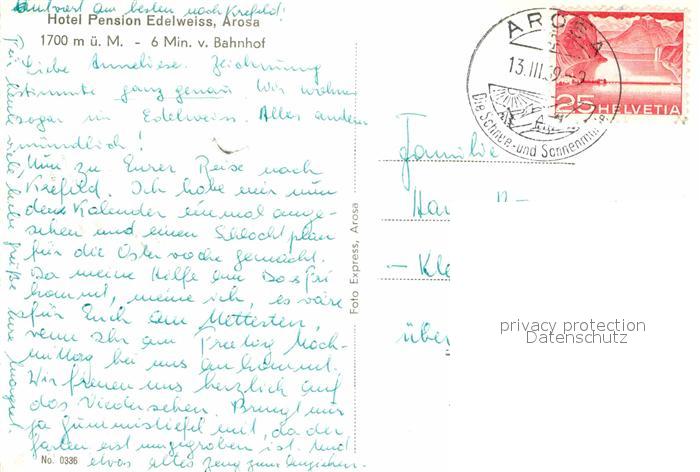 Antwort am besten nach Krefeld!
Hotel Pension Edelweiss, Arosa
1700 m ü. M. - 6 Min. v. Bahnhof
Liebe Anneliese. Zeichnung
stimmte ganz genau. Wir wohnen
sogar im Edelweiss. Alles andere
mündlich!
Nun zu Eurer Reise nach
Krefeld. Ich habe mir nun
den Kalender einmal ange-
sehen und einen Schlachtplan
für die Osterwoche gemacht.
Da meine Hilfe am
kommt, meine ich, es wäre
für Euch am nettesten,
wenn Ihr am Freitag Nach-
mittag bei uns ankommt.
Wir freuen uns herzlich auf
das Wiedersehen. Bringt mir
ja Gummistiefel mit, da der
Garten erst umgegraben ist. Und
etwas altes Zeug zum Anziehen.
Für heute viele liebe Grüße Eure Margret
No. 0336
Foto Express, Arosa
AROSA
13.III.59-9
Die Schnee- und Sonnen
25 HELVETIA
Familie
Han
- Kle
über
privacy protection
Datenschutz